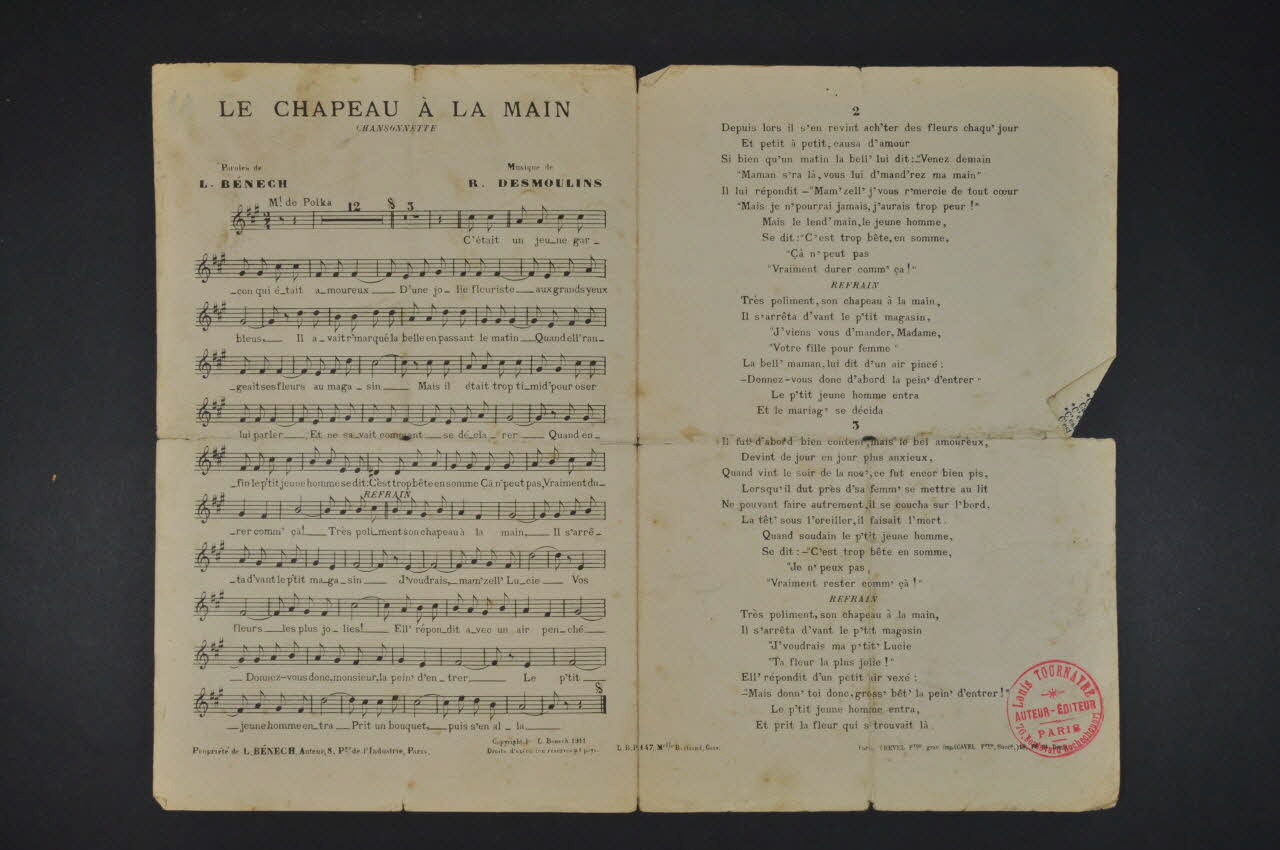 LE CHAPEAU À LA MAIN
CHANSONNETTE
Paroles de
L. BÉNECH
Musique de
R. DESMOULINS
Mt de Polka
12
3
C'était un jeu_ne gar_
_çon qui é_tait a_moureux___ D'une jo_lie fleuriste___ aux grands yeux
bleus,___ Il a_vait r'marqué la belle en passant le matin__Quand ell' ran_
_geait ses fleurs au maga_sin___ Mais il était trop ti_mid' pour oser
lui parler___ Et ne sa_vait comment___ se dé_cla_rer___ Quand en_
_fin le p'tit jeune homme se dit: C'est trop bête en somme Çà n'peut pas, Vraiment du_
REFRAIN
_rer comm' çà!___ Très poli_ment son chapeau à la main,___ Il s'arrê_
_ta d'vant le p'tit ma_ga_sin___ J'voudrais,_mam'zell' Lu_cie___ Vos
fleurs___les plus jo_lies!___ Ell' répon_dit a_vec un air pen_ché___
Donnez-vous donc, monsieur, la pein' d'en_trer,___ Le p'tit___
___jeune homme en_tra___ Prit un bouquet,___puis s'en al_la___
Propriété de L. BÉNECH, Auteur, 8, Pge de l'Industrie, Paris.
Copyright by L. Benech 1911
Droits d'exécution réservés pr pays
2
Depuis lors il s'en revint ach'ter des fleurs chaqu' jour
Et petit à petit, causa d'amour
Si bien qu'un matin la bell' lui dit:_"Venez demain
"Maman s'ra là, vous lui d'mand'rez ma main"
Il lui répondit _"Mam'zell' j'vous r'mercie de tout cœur
"Mais je n'pourrai jamais, j'aurais trop peur!"
Mais le lend'main, le jeune homme,
Se dit: "C'est trop bête, en somme,
"Çà n'peut pas
"Vraiment durer comm' ça!"
REFRAIN
Très poliment, son chapeau à la main,
Il s'arrêta d'vant le p'tit magasin,
"J'viens vous d'mander, Madame,
"Votre fille pour femme"
La bell' maman, lui dit d'un air pincé:
_Donnez-vous donc d'abord la pein' d'entrer"
Le p'tit jeune homme entra
Et le mariag' se décida
3
Il fut d'abord bien content, mais le bel amoureux,
Devint de jour en jour plus anxieux,
Quand vint le soir de la noc', ce fut encor bien pis,
Lorsqu'il dut près d'sa femm' se mettre au lit
Ne pouvant faire autrement, il se coucha sur l'bord.
La têt' sous l'oreiller, il faisait l'mort.
Quand soudain le p'tit jeune homme,
Se dit: _"C'est trop bête en somme,
"Je n'peux pas,
"Vraiment rester comm' çà!"
REFRAIN
Très poliment, son chapeau à la main,
Il s'arrêta d'vant le p'tit magasin
"J'voudrais ma p'tit' Lucie
"Ta fleur la plus jolie!"
Ell' répondit d'un petit air vexé:
_"Mais donn' toi donc, gross' bêt' la pein' d'entrer!"
Le p'tit jeune homme entra,
Et prit la fleur qui s'trouvait là
L.B.P. 147, Melle Bertrand, Grav.
Paris, CREVEL Frères, grav. imp.
Louis TOURNAYRE
AUTEUR-ÉDITEUR
PARIS
70, Boulevard Rochechouart